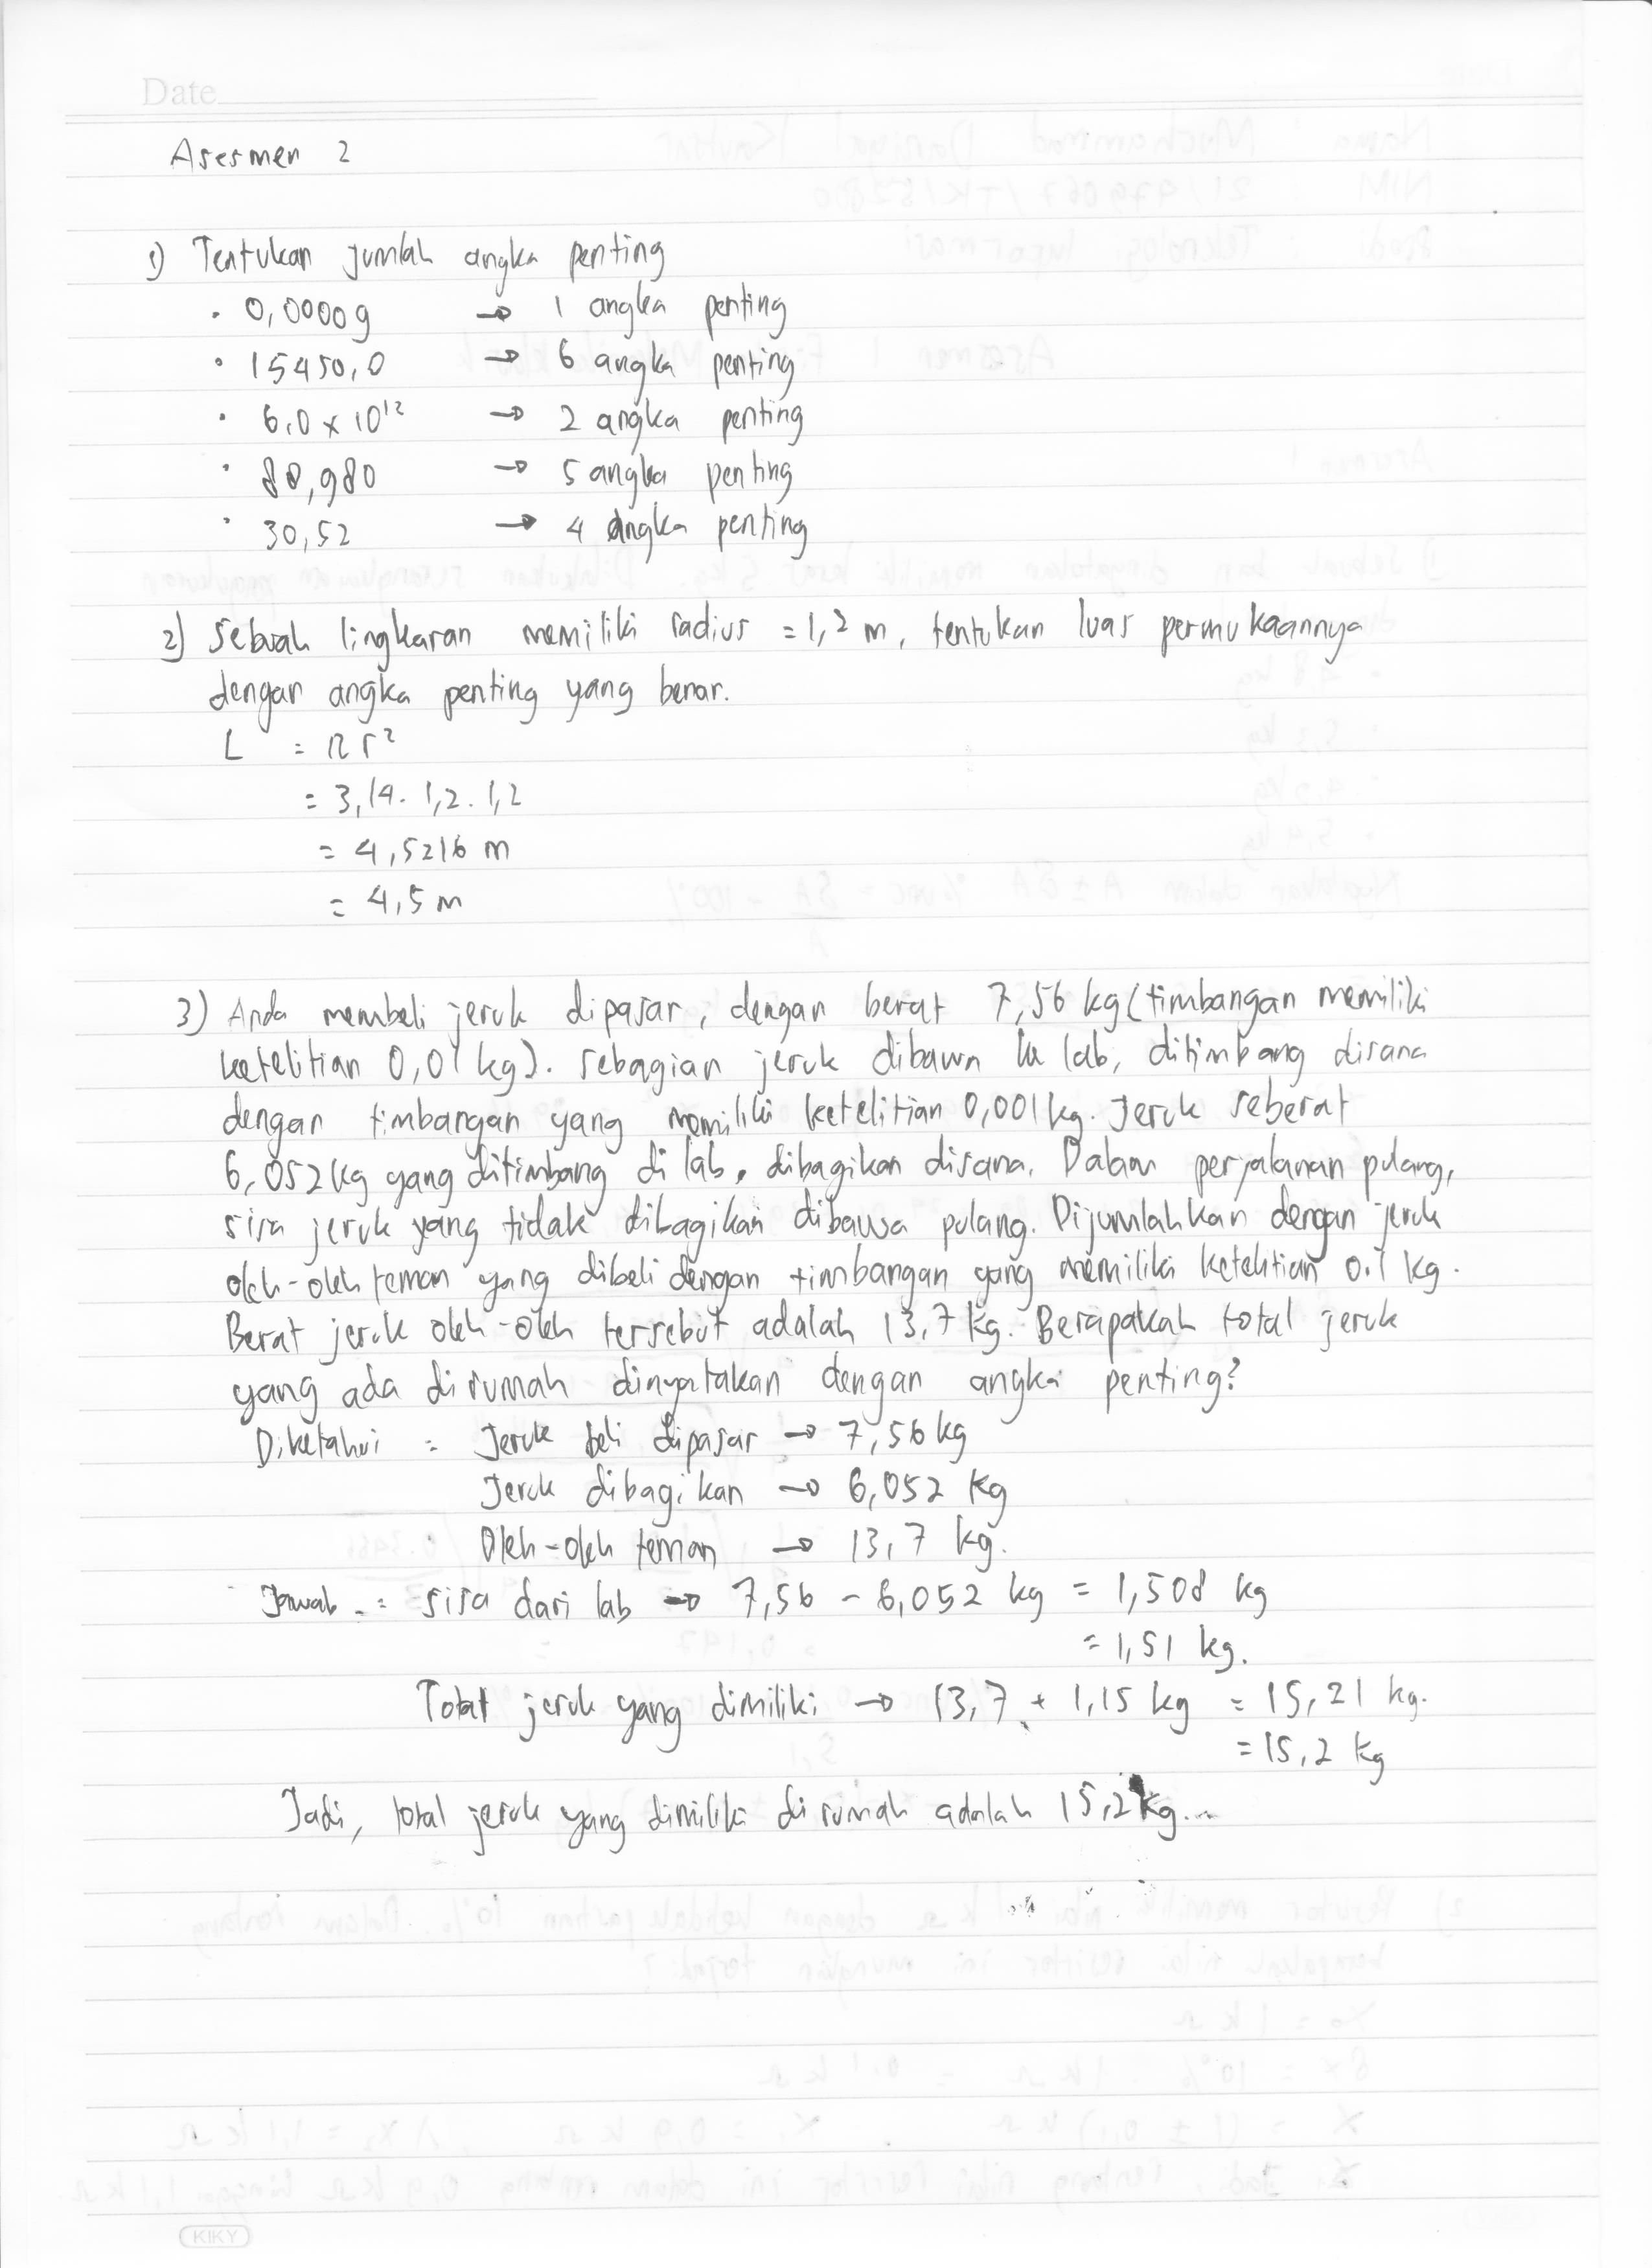 Date
Asesmen 2
1) Tentukan jumlah angka penting
• 0,00009 → 1 angka penting
• 15450,0 → 6 angka penting
• 6,0 x 10¹² → 2 angka penting
• 88,980 → 5 angka penting
• 30,52 → 4 angka penting
2) Sebuah lingkaran memiliki radius = 1,2 m, tentukan luas permukaannya
dengan angka penting yang benar.
L = π r²
= 3,14 . 1,2 . 1,2
= 4,5216 m
= 4,5 m
3) Anda membeli jeruk dipasar, dengan berat 7,56 kg (timbangan memiliki
ketelitian 0,01 kg). sebagian jeruk dibawa ke lab, ditimbang disana
dengan timbangan yang memiliki ketelitian 0,001 kg. Jeruk seberat
6,052 kg yang ditimbang di lab, dibagikan disana. Dalam perjalanan pulang,
sisa jeruk yang tidak dibagikan dibawa pulang. Dijumlahkan dengan jeruk
oleh-oleh teman yang dibeli dengan timbangan yang memiliki ketelitian 0.1 kg.
Berat jeruk oleh-oleh tersebut adalah 13,7 kg. Berapakah total jeruk
yang ada dirumah dinyatakan dengan angka penting?
Diketahui = Jeruk beli dipasar → 7,56 kg
Jeruk dibagikan → 6,052 kg
Oleh-oleh teman → 13,7 kg.
Jawab = sisa dari lab → 7,56 - 6,052 kg = 1,508 kg
= 1,51 kg.
Total jeruk yang dimiliki → 13,7 + 1,15 kg = 15,21 kg.
= 15,2 kg
Jadi, total jeruk yang dimiliki di rumah adalah 15,2 kg...
KIKY